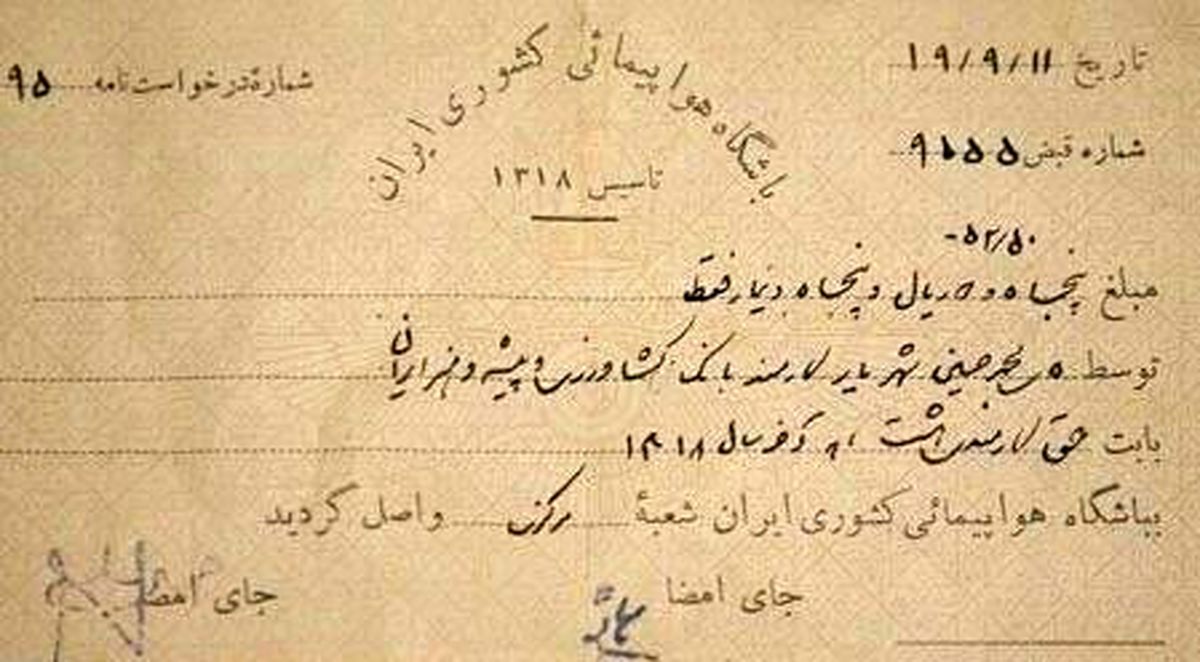 باشگاه هواپیمائی کشوری ایران
تاسیس ۱۳۱۸
تاریخ ۱۹/۹/۱۱
شماره درخواست نامه ۹۵
شماره قبض ۹۱۵۵
۵۲/۵۰-
مبلغ پنجاه و دو ریال و پنجاه دینار فقط
توسط محمدحسین شهریار کارمند بانک کشاورزی و پیشه و هنر ایران
بابت حق کارمندی هشت ماهه آخر سال ۱۳۱۸
بباشگاه هواپیمائی کشوری ایران شعبهٔ مرکزی واصل گردید
جای امضا
جای امضا